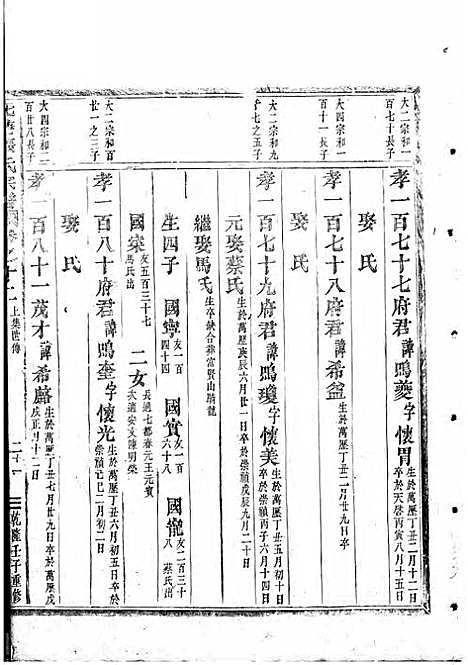 大二宗和一
百七十長子
孝一百七十七府君諱鳴夔字懷胃生於萬歷丁丑二月十二日
卒於天啓丙寅八月十五日
娶氏
大四宗和一
百十一長子
孝一百七十八府君諱希益生於萬歷丁丑二月廿九日卒
娶氏
大二宗和九
十七之五子
孝一百七十九府君諱鳴瓊字懷美生於萬歷丁丑五月初十日
卒於崇禎丙子六月十四日
元娶蔡氏生於萬歷庚辰六月廿一日
卒於崇禎庚辰九月二十日
繼娶馬氏生卒缺合葬富賢山騎龍
生四子 國寧友一百
四十四 國賓友一百
八 國龍友二百三十
八 蔡氏出
國寀友五百三十七
馬氏出 二女長適七都春元王元賓
次適安文陳明榮
大二宗和百
廿一之三子
孝一百八十府君諱鳴奎字懷光生於萬歷丁丑六月初五日卒於
崇禎己巳二月初二日
娶氏
大四宗和二
百廿八長子
孝一百八十一茂才諱希麟生於萬歷丁丑七月廿二日卒於萬歷戊
戌正月十二日
上集世傳
乾隆壬子重修